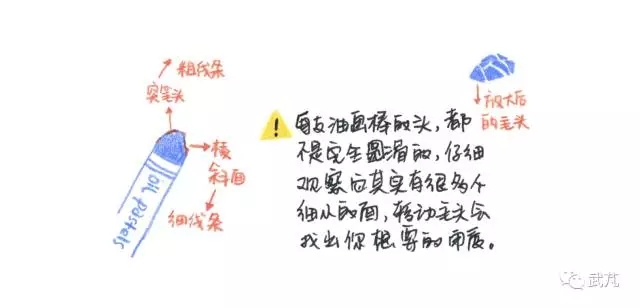 粗线条
实笔头
棱
斜面
细线条
oil pastels
放大后
的笔头
每支油画棒的头，都
不是完全圆滑的，仔细
观察它其实有很多个
细小的面，转动笔头会
找出你想要的角度。
武芃